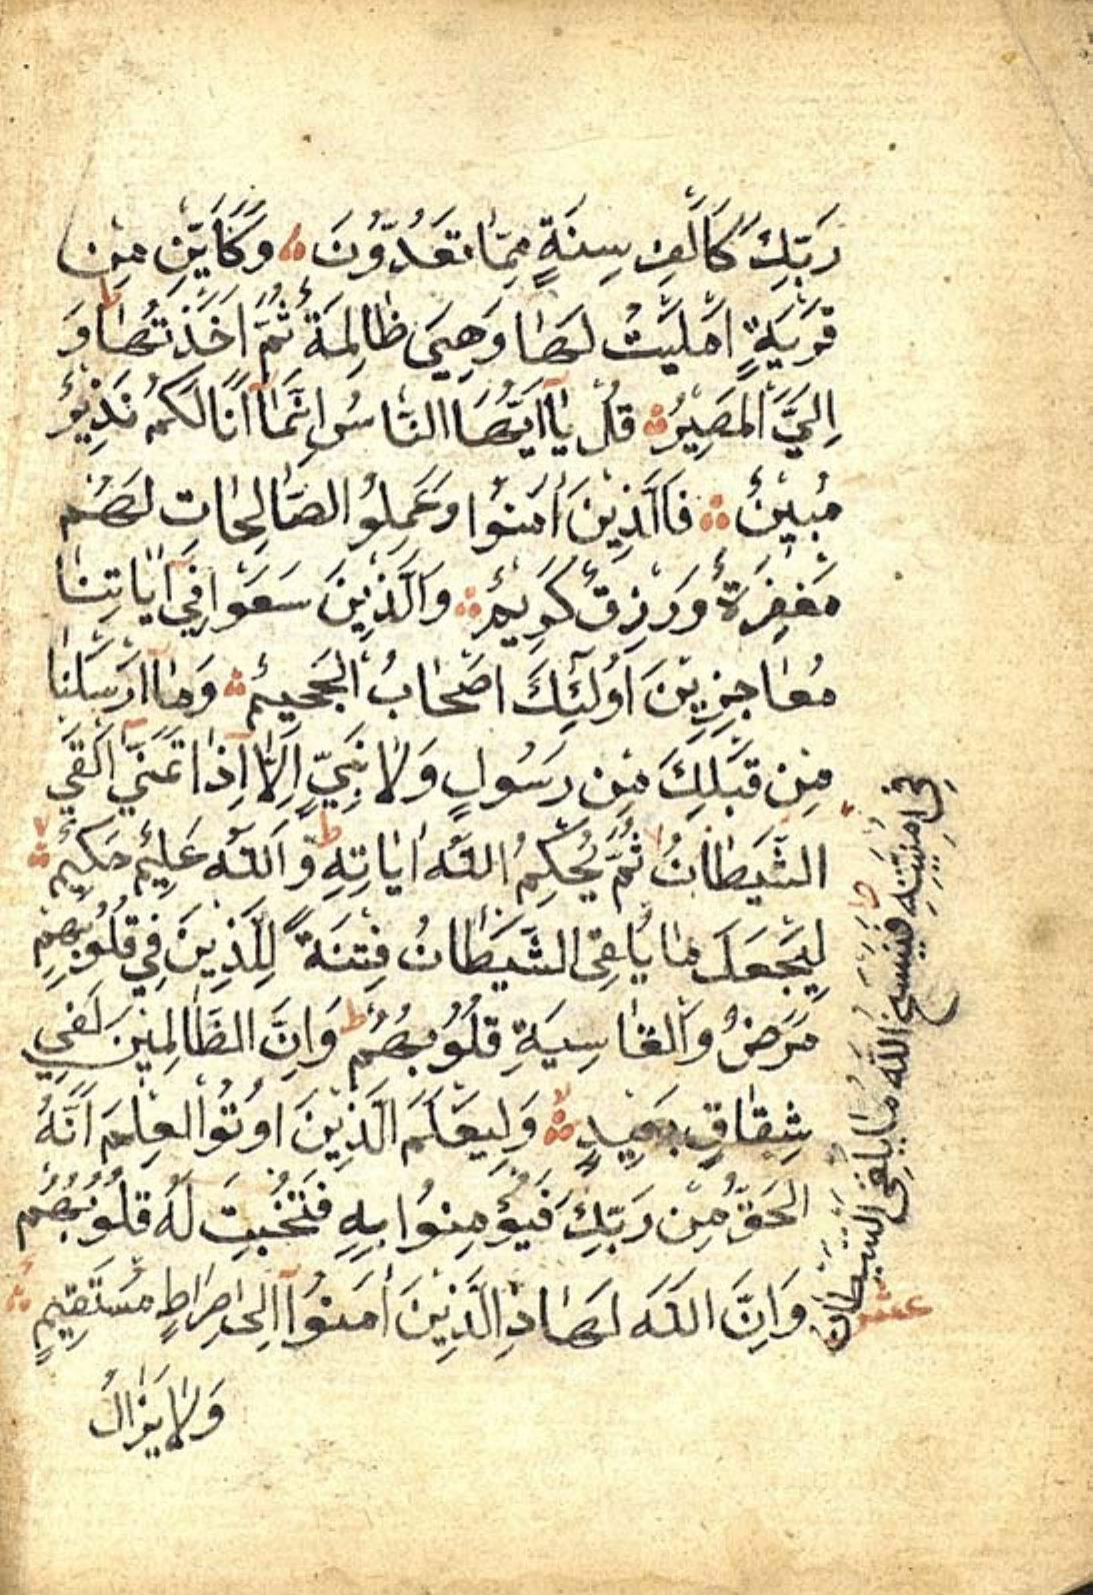 رَبِّكَ كَاَلْفِ سَنَةٍ مِمَّا تَعُدُّونَ وَكَاَيِّنْ مِنْ
قَرْيَةٍ اَمْلَيْتُ لَهَا وَهِيَ ظَالِمَةٌ ثُمَّ اَخَذْتُهَا ط وَ
اِلَيَّ الْمَصِيرُ قُلْ يَٓا اَيُّهَا النَّاسُ اِنَّمَٓا اَنَا لَكُمْ نَذِيرٌ
مُبِينٌ فَالَّذِينَ اٰمَنُوا وَعَمِلُوا الصَّالِحَاتِ لَهُمْ
مَغْفِرَةٌ وَرِزْقٌ كَرِيمٌ وَالَّذِينَ سَعَوْا فِٓي اٰيَاتِنَا
مُعَاجِزِينَ اُولٰٓئِكَ اَصْحَابُ الْجَحِيمِ وَمَٓا اَرْسَلْنَا
مِنْ قَبْلِكَ مِنْ رَسُولٍ وَلَا نَبِيٍّ اِلَّٓا اِذَا تَمَنّٰٓى اَلْقَى
الشَّيْطَانُ ثُمَّ يُحْكِمُ اللّٰهُ اٰيَاتِهِ ط وَاللّٰهُ عَلِيمٌ حَكِيمٌ
لِيَجْعَلَ مَا يُلْقِي الشَّيْطَانُ فِتْنَةً لِلَّذِينَ فِي قُلُوبِهِمْ
مَرَضٌ وَالْقَاسِيَةِ قُلُوبُهُمْ ط وَاِنَّ الظَّالِمِينَ لَفِي
شِقَاقٍ بَعِيدٍ وَلِيَعْلَمَ الَّذِينَ اُوتُوا الْعِلْمَ اَنَّهُ
الْحَقُّ مِنْ رَبِّكَ فَيُؤْمِنُوا بِهِ فَتُخْبِتَ لَهُ قُلُوبُهُمْ
وَاِنَّ اللّٰهَ لَهَادِ الَّذِينَ اٰمَنُٓوا اِلٰى صِرَاطٍ مُسْتَقِيمٍ
وَلَا يَزَالُ
فِٓي اُمْنِيَّتِهِ ط فَيَنْسَخُ اللّٰهُ مَا يُلْقِي الشَّيْطَانُ
عشر